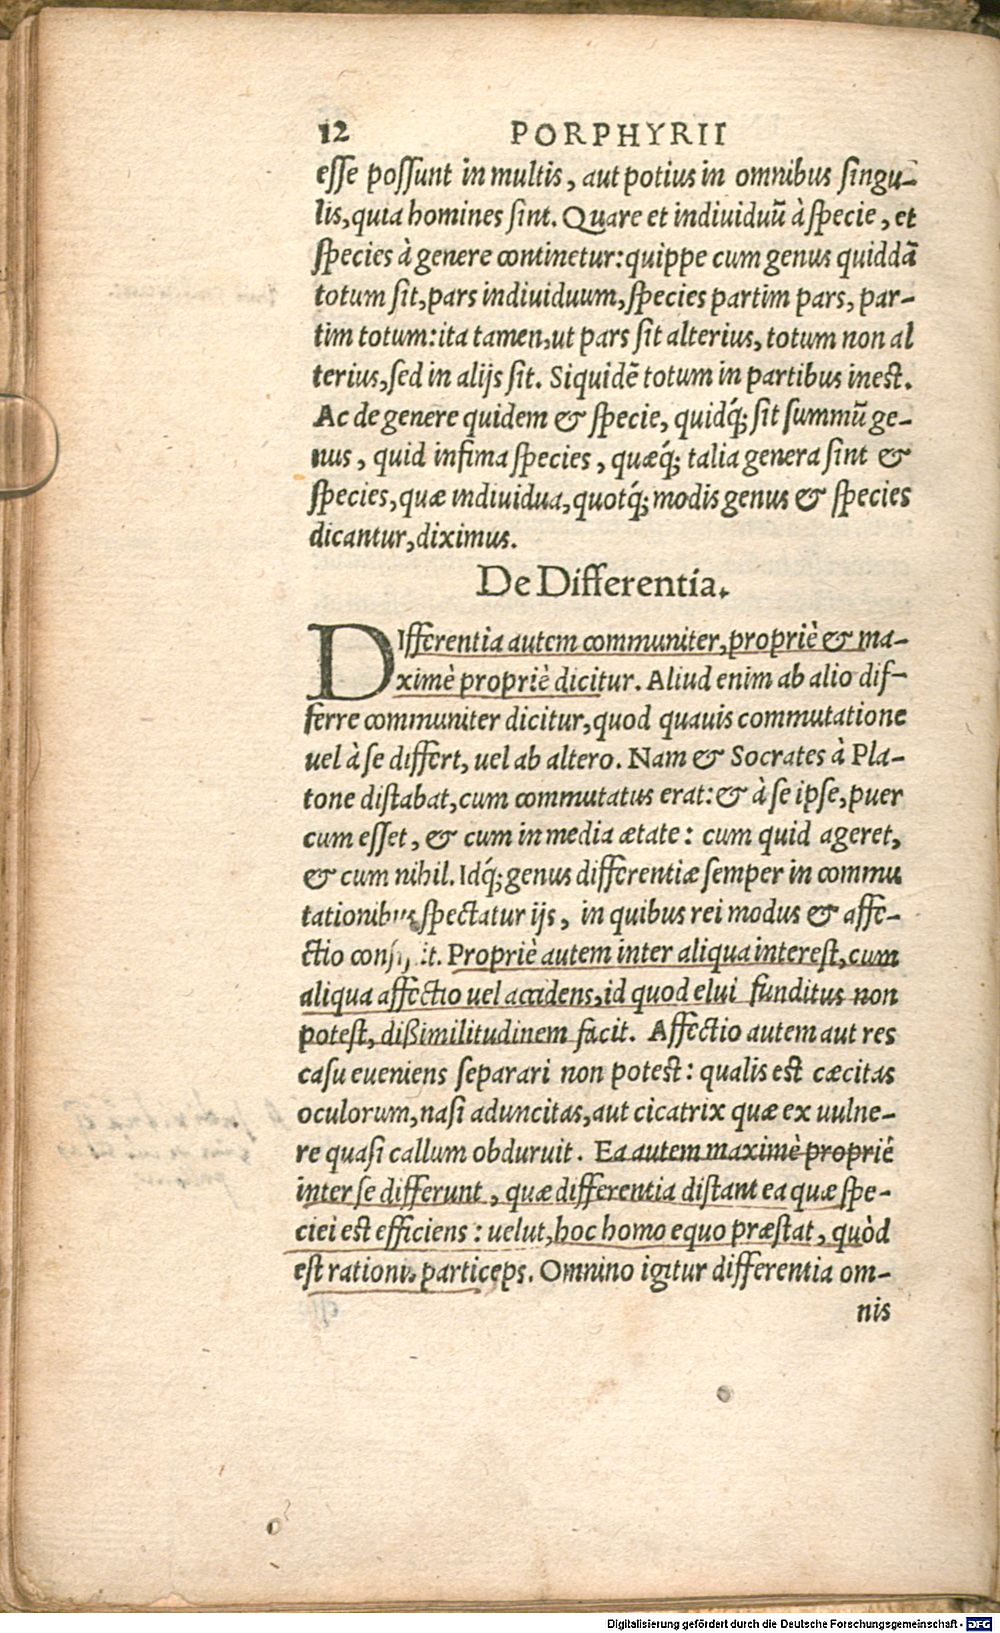 12 PORPHYRII
esse possunt in multis, aut potius in omnibus singu-
lis, quia homines sint. Quare et indiuiduũ à specie, et
species à genere continetur: quippe cum genus quiddã
totum sit, pars indiuiduum, species partim pars, par-
tim totum: ita tamen, ut pars sit alterius, totum non al
terius, sed in alijs sit. Siquidẽ totum in partibus inest.
Ac de genere quidem & specie, quidq́; sit summũ ge-
nus, quid infima species, quæq́; talia genera sint &
species, quæ indiuidua, quotq́; modis genus & species
dicantur, diximus.
De Differentia.
DIfferentia autem communiter, propriè & ma-
ximè propriè dicitur. Aliud enim ab alio dif-
ferre communiter dicitur, quod quauis commutatione
uel à se differt, uel ab altero. Nam & Socrates à Pla-
tone distabat, cum commutatus erat: & à se ipse, puer
cum esset, & cum in media ætate: cum quid ageret,
& cum nihil. Idq́; genus differentiæ semper in commu
tationibus spectatur ijs, in quibus rei modus & affe-
ctio consistit. Propriè autem inter aliqua interest, cum
aliqua affectio uel accidens, id quod elui funditus non
potest, dißimilitudinem facit. Affectio autem aut res
casu eueniens separari non potest: qualis est cæcitas
oculorum, nasi aduncitas, aut cicatrix quæ ex uulne-
re quasi callum obduruit. Ea autem maximè propriè
inter se differunt, quæ differentia distant ea quæ spe-
ciei est efficiens: uelut, hoc homo equo præstat, quòd
est rationis particeps. Omnino igitur differentia om-
nis
Digitalisierung gefördert durch die Deutsche Forschungsgemeinschaft - DFG